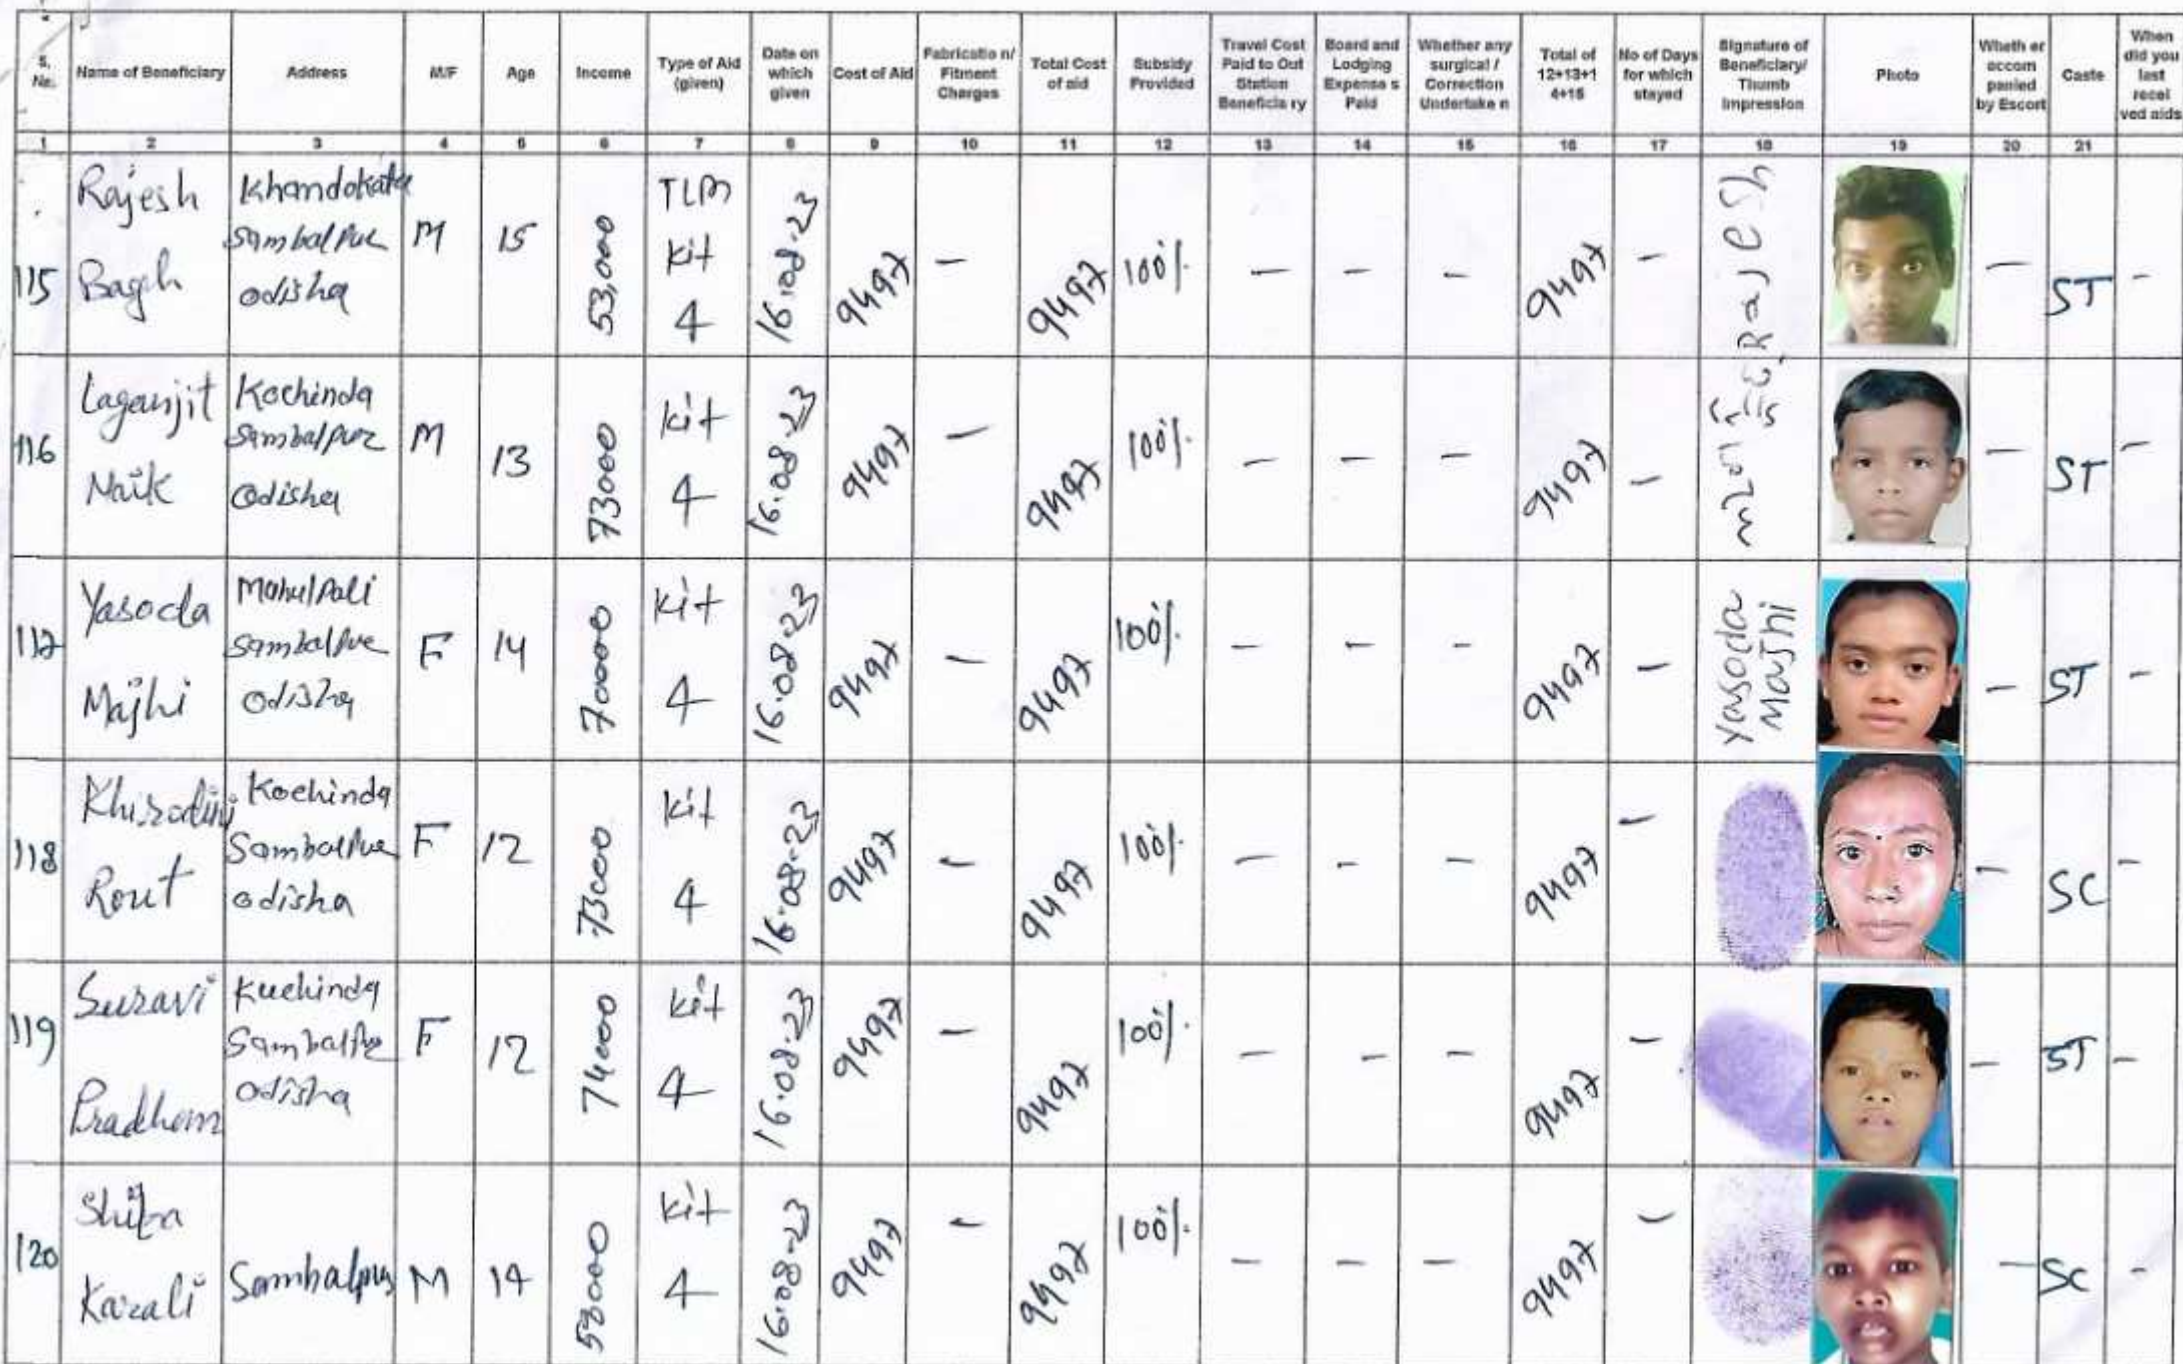 S. No. Name of Beneficiary Address M/F Age Income Type of Aid (given) Date on which given Cost of Aid Fabricatio n/ Fitment Charges Total Cost of aid Subsidy Provided Travel Cost Paid to Out Station Beneficia ry Board and Lodging Expense s Paid Whether any surgical / Correction Undertake n Total of 12+13+1 4+15 No of Days for which stayed Signature of Beneficiary/ Thumb Impression Photo Wheth er accom panied by Escort Caste When did you last recei ved aids
1 2 3 4 5 6 7 8 9 10 11 12 13 14 15 16 17 18 19 20 21
115 Rajesh Bagh Khandokata Sambalpur odisha M 15 53,000 TLM kit 4 16.08.23 9497 — 9497 100% — — — 9497 — Rajesh — ST -
116 Laganjit Naik Kochinda Sambalpur Odisha M 13 73000 kit 4 16.08.23 9497 — 9497 100% — — — 9497 — — ST -
117 Yasoda Majhi Mahulpali Sambalpur odisha F 14 70000 kit 4 16.08.23 9497 — 9497 100% — — — 9497 — Yasoda Majhi — ST -
118 Rout Kochinda Sambalpur odisha F 12 73000 kit 4 16.08.23 9497 — 9497 100% — — — 9497 — — SC -
119 Suravi Pradhan Kuchinda Sambalpur odisha F 12 74000 kit 4 16.08.23 9497 — 9497 100% — — — 9497 — — ST -
120 Shiba Karali Sambalpur M 14 kit 4 16.08.23 9497 — 9497 100% — — — 9497 — — SC -